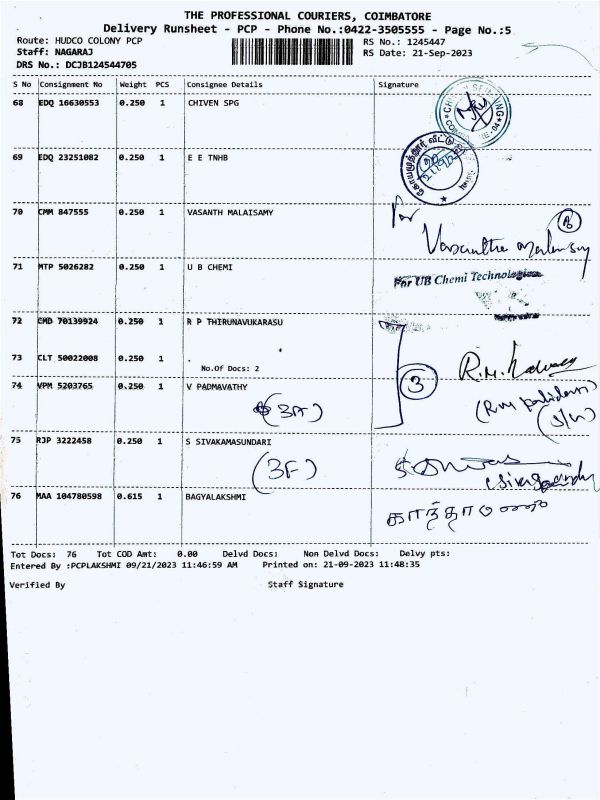 THE PROFESSIONAL COURIERS, COIMBATORE
Delivery Runsheet - PCP - Phone No.:0422-3505555 - Page No.:5
Route: HUDCO COLONY PCP RS No.: 1245447
Staff: NAGARAJ RS Date: 21-Sep-2023
DRS No.: DCJB124544705
S No Consignment No Weight PCS Consignee Details Signature
68 EDQ 16630553 0.250 1 CHIVEN SPG
69 EDQ 23251082 0.250 1 E E TNHB
70 CMM 847555 0.250 1 VASANTH MALAISAMY
For
Vasantha
71 MTP 5026282 0.250 1 U B CHEMI
For UB Chemi Technologies
72 CMD 70139924 0.250 1 R P THIRUNAVUKARASU
73 CLT 50022008 0.250 1 .
No.Of Docs: 2
3
74 VPM 5203765 0.250 1 V PADMAVATHY
(3A)
75 RJP 3222458 0.250 1 S SIVAKAMASUNDARI
(3F)
76 MAA 104780598 0.615 1 BAGYALAKSHMI
Tot Docs: 76 Tot COD Amt: 0.00 Delvd Docs: Non Delvd Docs: Delvy pts:
Entered By :PCPLAKSHMI 09/21/2023 11:46:59 AM Printed on: 21-09-2023 11:48:35
Verified By Staff Signature